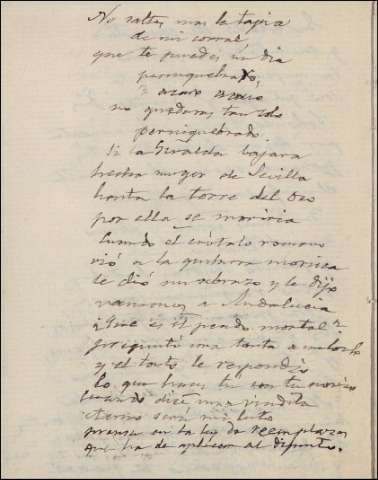 No saltes mas la tapia
de mi corral
que te puedes un dia
perniquebrar,
ó acaso acaso
no quedaras tan solo
perniquebrado.
Si la Giralda bajara
hecha muger de Sevilla
hasta la torre del Oro
por ella se moriria
Cuando el crótalo romano
vió a la guitarra morisca
le dió un abrazo y le dijo
vamonos a Andalucia
¿Que es el pecado mortal?
preguntó una tonta a
y el tonto le respondió
lo que haces tu con tu
Cuando dice una viudita
eterno será mi luto
piensa en la ley de reemplazos
que ha de aplicar al difunto.